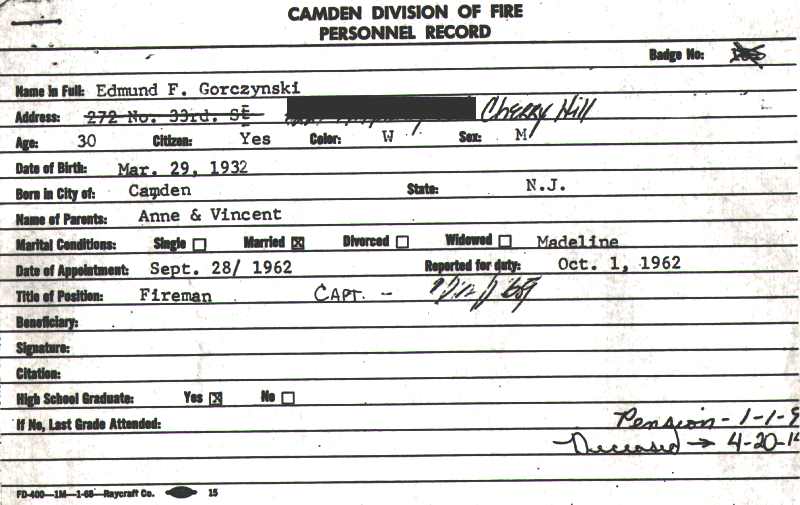 CAMDEN DIVISION OF FIRE
PERSONNEL RECORD
Badge No:
Name in Full: Edmund F. Gorczynski
Address: 272 No. 33rd. St Cherry Hill
Age: 30 Citizen: Yes Color: W Sex: M
Date of Birth: Mar. 29, 1932
Born in City of: Camden State: N.J.
Name of Parents: Anne & Vincent
Marital Conditions: Single Married Divorced Widowed Madeline
Date of Appointment: Sept. 28/ 1962 Reported for duty: Oct. 1, 1962
Title of Position: Fireman CAPT. -
Beneficiary:
Signature:
Citation:
High School Graduate: Yes No
If No, Last Grade Attended: Pension - 1-1-9
Deceased → 4-20-1
FD-400—1M—1-68—Raycraft Co. 15